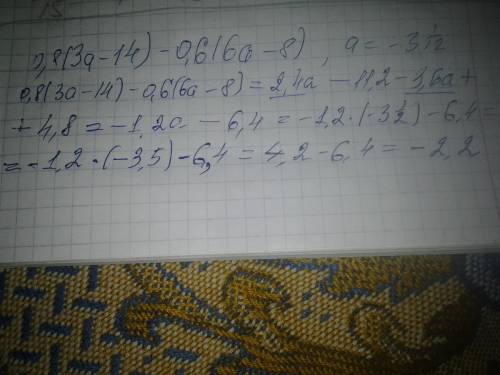 0,8(3a-14)-0,6(6a-8), a=-3 1/2
0,8(3a-14)-0,6(6a-8)=2,4a-11,2-3,6a+
+4,8=-1,2a-6,4=-1,2·(-3 1/2)-6,4=
=-1,2·(-3,5)-6,4=4,2-6,4=-2,2